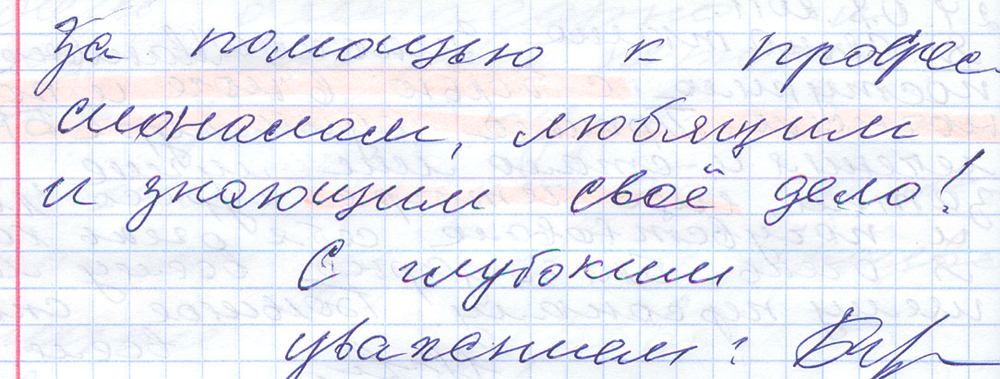 за помощью к профес-
сионалам, любящим
и знающим своё дело!
С глубоким
уважением: